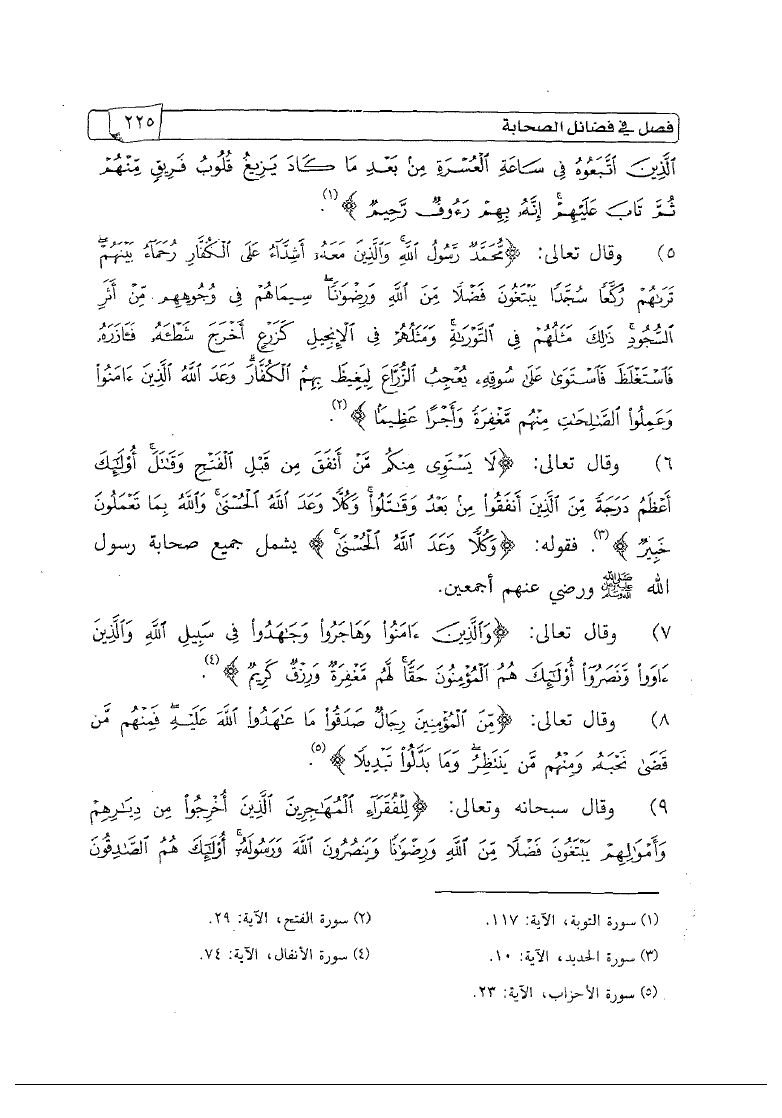 فصل في فضائل الصحابة
٢٢٥
ٱلَّذِينَ ٱتَّبَعُوهُ فِى سَاعَةِ ٱلْعُسْرَةِ مِنۢ بَعْدِ مَا كَادَ يَزِيغُ قُلُوبُ فَرِيقٍ مِّنْهُمْ
ثُمَّ تَابَ عَلَيْهِمْ ۚ إِنَّهُۥ بِهِمْ رَءُوفٌ رَّحِيمٌ ﴾(١).
٥) وقال تعالى: ﴿ مُّحَمَّدٌ رَّسُولُ ٱللَّهِ ۚ وَٱلَّذِينَ مَعَهُۥٓ أَشِدَّآءُ عَلَى ٱلْكُفَّارِ رُحَمَآءُ بَيْنَهُمْ ۖ
تَرَىٰهُمْ رُكَّعًا سُجَّدًا يَبْتَغُونَ فَضْلًا مِّنَ ٱللَّهِ وَرِضْوَٰنًا ۖ سِيمَاهُمْ فِى وُجُوهِهِم مِّنْ أَثَرِ
ٱلسُّجُودِ ۚ ذَٰلِكَ مَثَلُهُمْ فِى ٱلتَّوْرَىٰةِ ۚ وَمَثَلُهُمْ فِى ٱلْإِنجِيلِ كَزَرْعٍ أَخْرَجَ شَطْـَٔهُۥ فَـَٔازَرَهُۥ
فَٱسْتَغْلَظَ فَٱسْتَوَىٰ عَلَىٰ سُوقِهِۦ يُعْجِبُ ٱلزُّرَّاعَ لِيَغِيظَ بِهِمُ ٱلْكُفَّارَ ۗ وَعَدَ ٱللَّهُ ٱلَّذِينَ ءَامَنُوا۟
وَعَمِلُوا۟ ٱلصَّٰلِحَٰتِ مِنْهُم مَّغْفِرَةً وَأَجْرًا عَظِيمًۢا ﴾(٢).
٦) وقال تعالى: ﴿ لَا يَسْتَوِى مِنكُم مَّنْ أَنفَقَ مِن قَبْلِ ٱلْفَتْحِ وَقَٰتَلَ ۚ أُو۟لَٰٓئِكَ
أَعْظَمُ دَرَجَةً مِّنَ ٱلَّذِينَ أَنفَقُوا۟ مِنۢ بَعْدُ وَقَٰتَلُوا۟ ۚ وَكُلًّا وَعَدَ ٱللَّهُ ٱلْحُسْنَىٰ ۚ وَٱللَّهُ بِمَا تَعْمَلُونَ
خَبِيرٌ ﴾(٣). فقوله: ﴿ وَكُلًّا وَعَدَ ٱللَّهُ ٱلْحُسْنَىٰ ۚ ﴾ يشمل جميع صحابة رسول
الله ﷺ ورضي عنهم أجمعين.
٧) وقال تعالى: ﴿ وَٱلَّذِينَ ءَامَنُوا۟ وَهَاجَرُوا۟ وَجَٰهَدُوا۟ فِى سَبِيلِ ٱللَّهِ وَٱلَّذِينَ
ءَاوَوا۟ وَّنَصَرُوٓا۟ أُو۟لَٰٓئِكَ هُمُ ٱلْمُؤْمِنُونَ حَقًّا ۚ لَّهُم مَّغْفِرَةٌ وَرِزْقٌ كَرِيمٌ ﴾(٤).
٨) وقال تعالى: ﴿ مِّنَ ٱلْمُؤْمِنِينَ رِجَالٌ صَدَقُوا۟ مَا عَٰهَدُوا۟ ٱللَّهَ عَلَيْهِ ۖ فَمِنْهُم مَّن
قَضَىٰ نَحْبَهُۥ وَمِنْهُم مَّن يَنتَظِرُ ۖ وَمَا بَدَّلُوا۟ تَبْدِيلًا ﴾(٥).
٩) وقال سبحانه وتعالى: ﴿ لِلْفُقَرَآءِ ٱلْمُهَٰجِرِينَ ٱلَّذِينَ أُخْرِجُوا۟ مِن دِيَٰرِهِمْ
وَأَمْوَٰلِهِمْ يَبْتَغُونَ فَضْلًا مِّنَ ٱللَّهِ وَرِضْوَٰنًا وَيَنصُرُونَ ٱللَّهَ وَرَسُولَهُۥٓ ۚ أُو۟لَٰٓئِكَ هُمُ ٱلصَّٰدِقُونَ
(١) سورة التوبة، الآية: ١١٧.
(٢) سورة الفتح، الآية: ٢٩.
(٣) سورة الحديد، الآية: ١٠.
(٤) سورة الأنفال، الآية: ٧٤.
(٥) سورة الأحزاب، الآية: ٢٣.